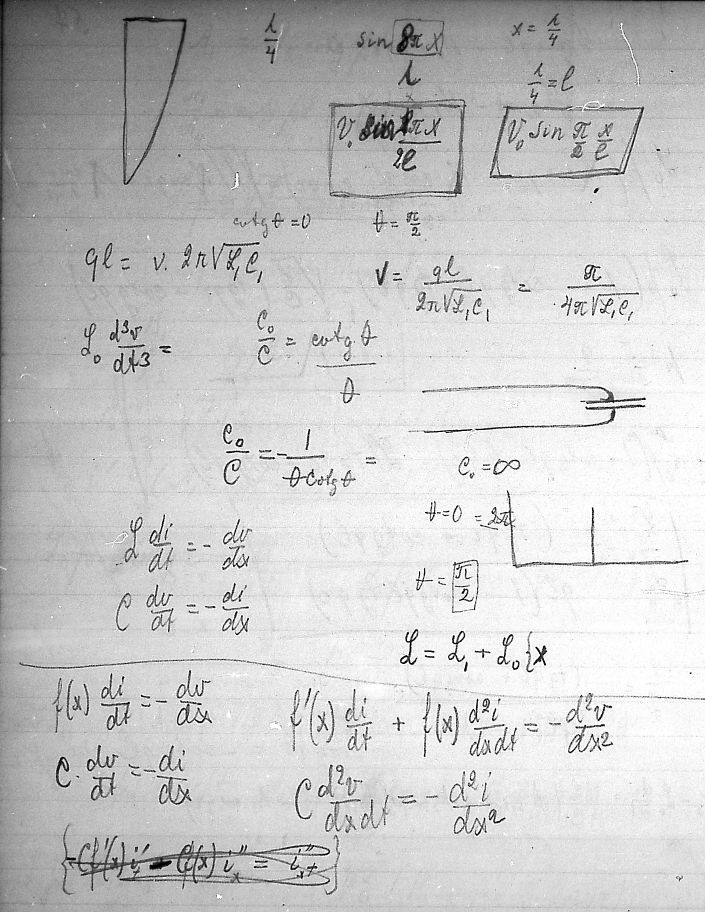 λ/4
sin 8πx / λ
x = λ/4
λ/4 = l
V₀ sin πx / 2l
V₀ sin π/2 x/l
cotg θ = 0 θ = π/2
ql = ν. 2π√(ℒ₁C₁)
ν = ql / 2π√(ℒ₁C₁) = π / 4π√(ℒ₁C₁)
ℒ₀ d³v/dt³ =
C₀/C = cotg θ / θ
C₀/C = - 1 / θ cotg θ =
C₀ = ∞
θ = 0 = 2π
θ = π/2
ℒ di/dt = - dv/dx
C dv/dt = - di/dx
ℒ = ℒ₁ + ℒ₀ {x
f(x) di/dt = - dv/dx
f'(x) di/dt + f(x) d²i/dxdt = - d²v/dx²
C. dv/dt = - di/dx
C d²v/dxdt = - d²i/dx²